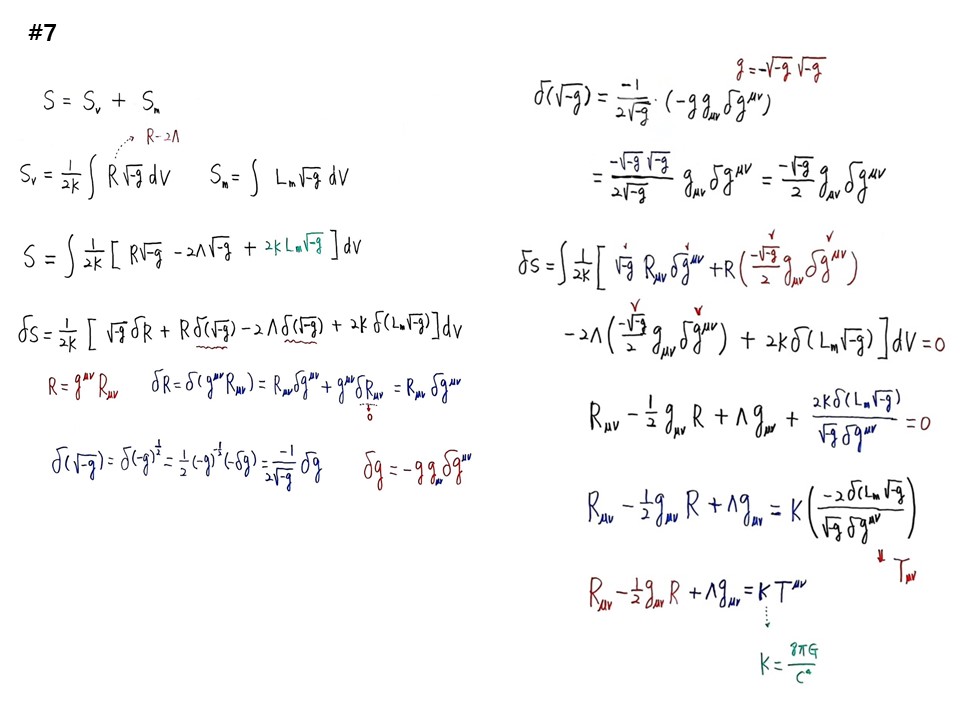 #7
S = S_v + S_m
R-2Λ
S_v = 1/2K ∫ R√-g dV    S_m = ∫ L_m√-g dV
S = ∫ 1/2K [ R√-g - 2Λ√-g + 2K L_m√-g ] dV
δS = 1/2K [ √-g δR + R δ(√-g) - 2Λ δ(√-g) + 2K δ(L_m√-g) ] dV
R = g^μν R_μν    δR = δ(g^μν R_μν) = R_μν δg^μν + g^μν δR_μν = R_μν δg^μν
0
δ(√-g) = δ(-g)^1/2 = 1/2 (-g)^-1/2 (-δg) = -1/2√-g δg    δg = -g g_μν δg^μν
g = -√-g √-g
δ(√-g) = -1/2√-g · (-g g_μν δg^μν)
= -√-g √-g/2√-g g_μν δg^μν = -√-g/2 g_μν δg^μν
δS = ∫ 1/2K [ √-g R_μν δg^μν + R( -√-g/2 g_μν δg^μν )
- 2Λ( -√-g/2 g_μν δg^μν ) + 2K δ(L_m√-g) ] dV = 0
R_μν - 1/2 g_μν R + Λ g_μν + 2K δ(L_m√-g)/√-g δg^μν = 0
R_μν - 1/2 g_μν R + Λ g_μν = K ( -2δ(L_m√-g/√-g δg^μν )
T_μν
R_μν - 1/2 g_μν R + Λ g_μν = K T^μν
K = 8πG/C^4